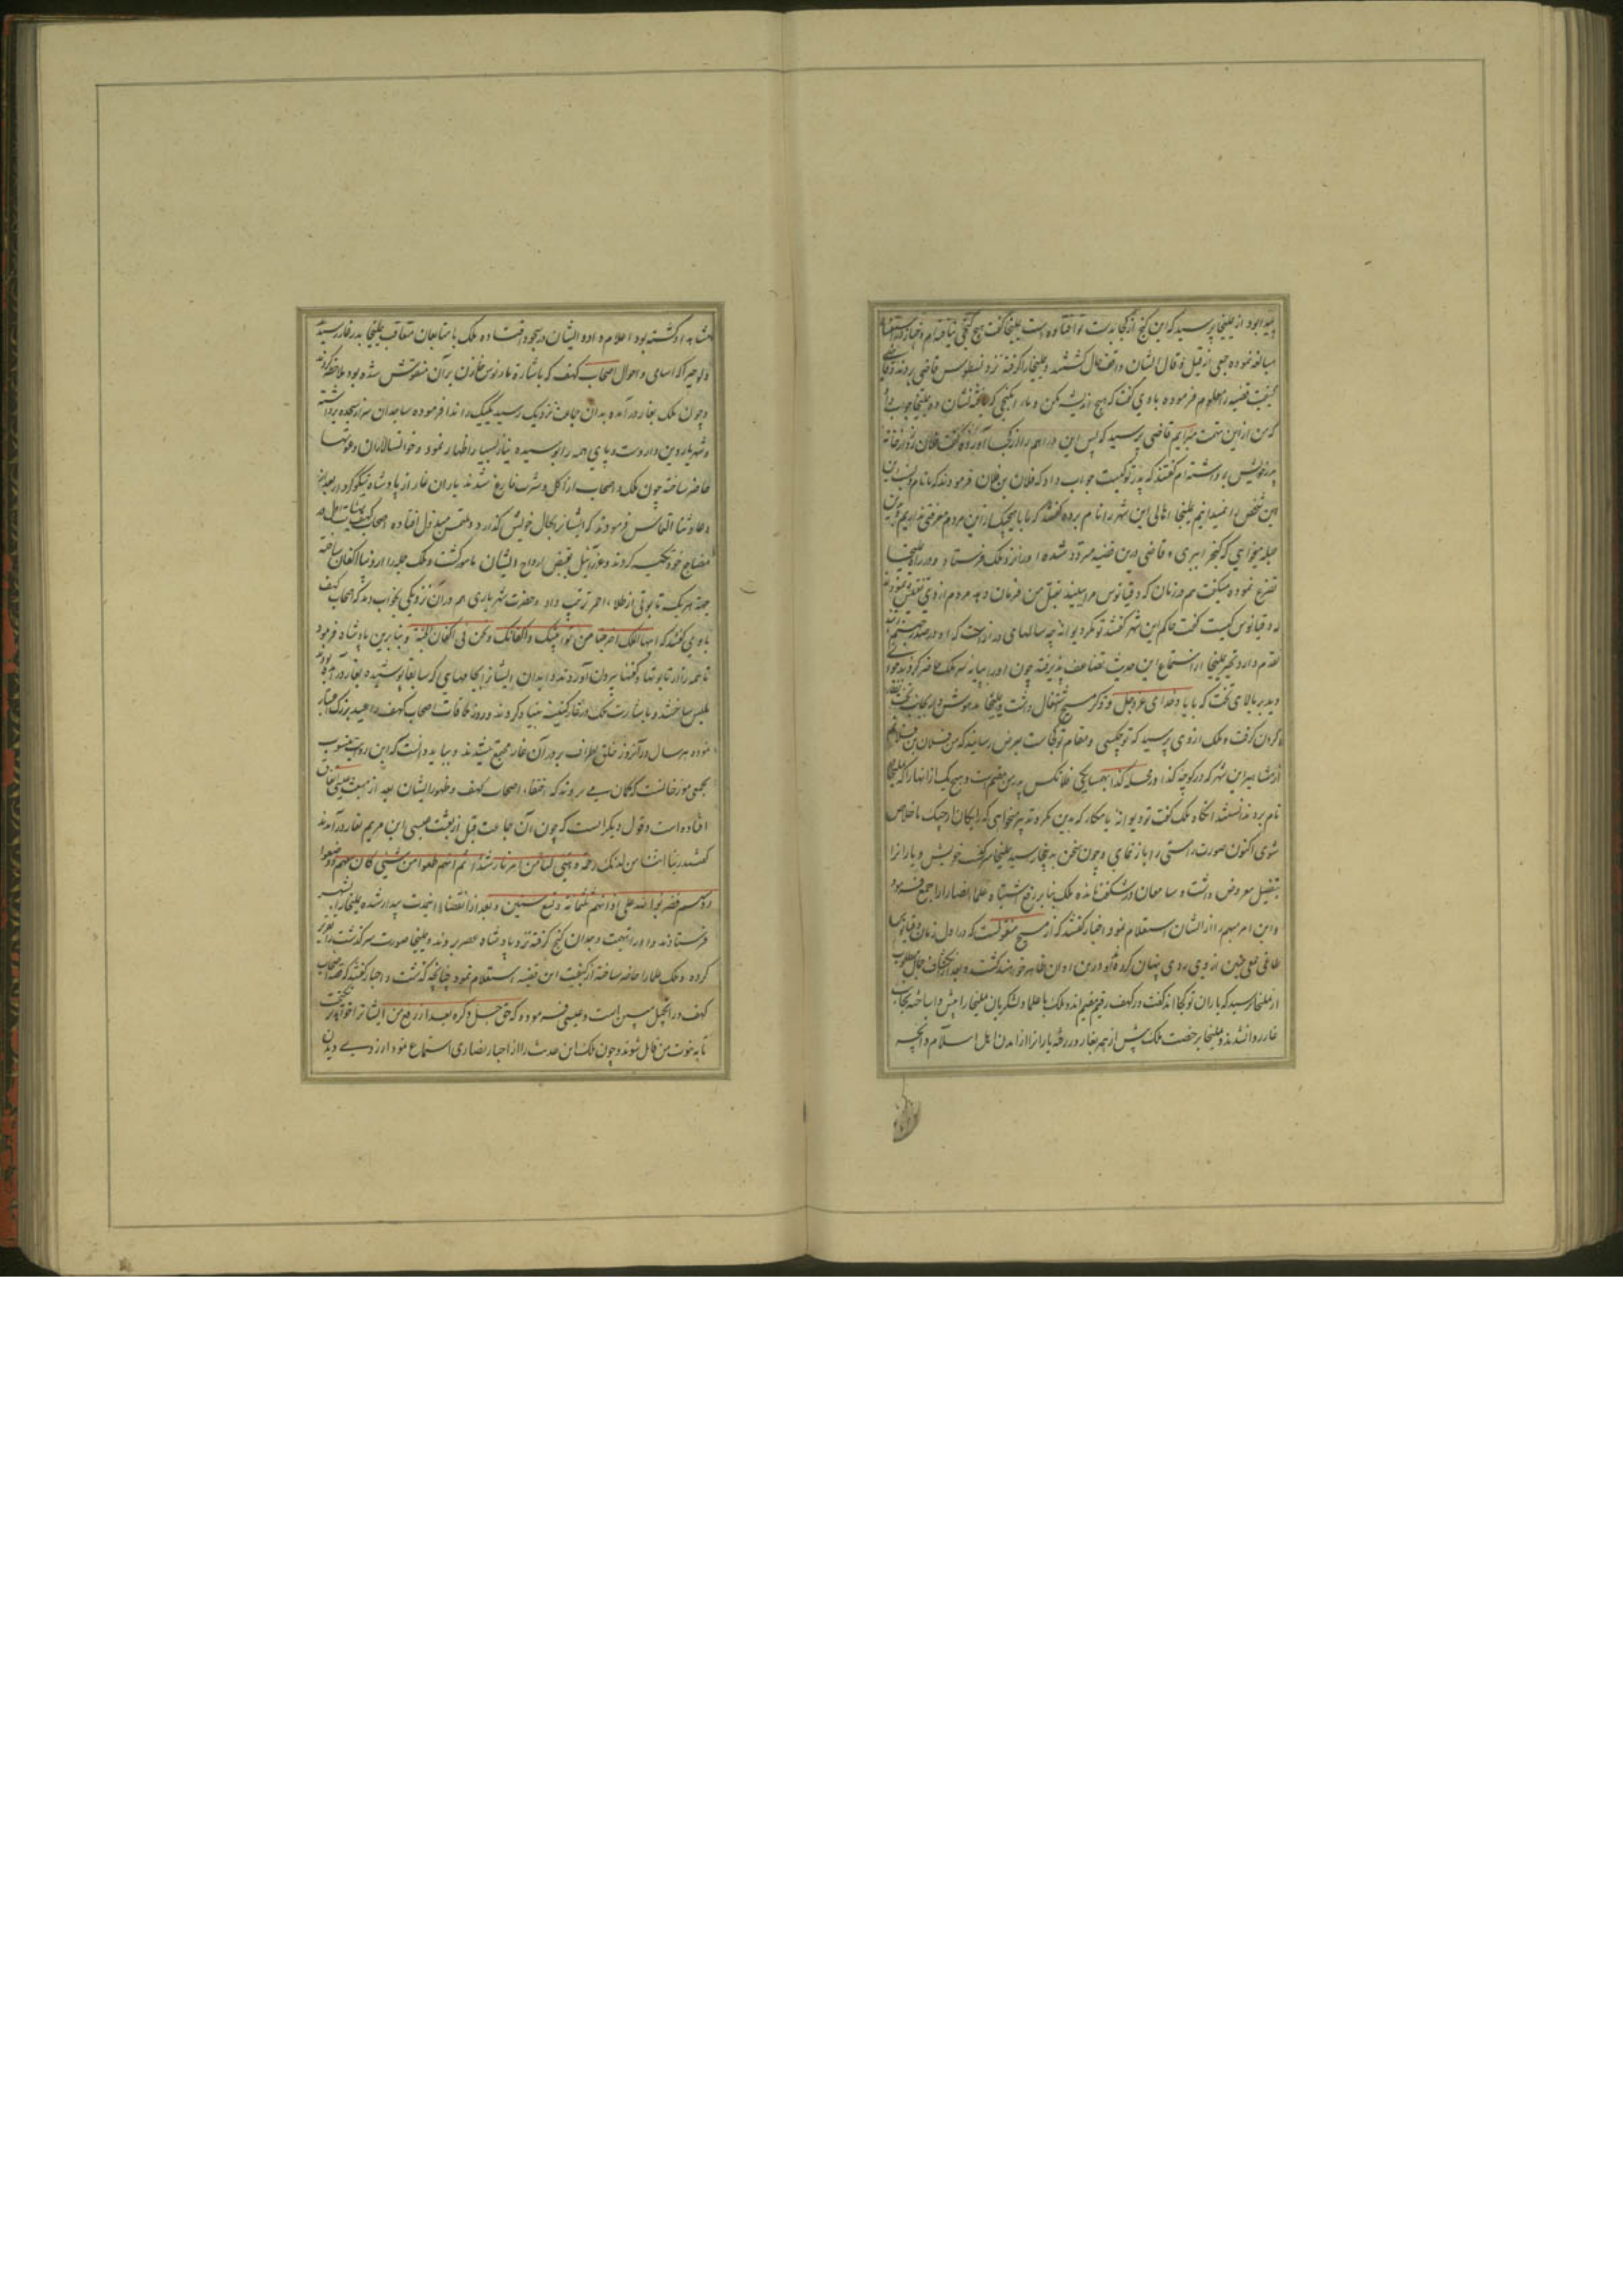 پیدا بود از یملیخا پرسید که این گنج از کجا بدست تو افتاده است یملیخا گفت هیچ گنجی نیافته‌ام
مبالغه نموده جمعی از قیل و قال ایشان واقف حال گشتند و یملیخا را گرفته نزد نسطوس قاضی بردند
کیفیت قضیه را معلوم فرموده با وی گفت که هیچ اندیشه مکن و ما را بگنجی که یافته نشان ده یملیخا جواب
که من ازین تهمت مبرایم قاضی پرسید که پس این دراهم را از کجا آورده گفت فلان روز از خانه
پدر خویش برداشته‌ام گفتند که پدر تو کیست جواب داد که فلان بن فلان فرمودند که ما نام
این شخص را نمیدانیم یملیخا اهالی این شهر را نام برده گفتند که ما با هیچیک ازین مردم معرفتی نداریم
حیله میخواهی که گنج را ببری و قاضی درین قضیه متردد شده او را نزد ملک فرستاد و در راه یملیخا
تضرع نموده میگفت هم در زمان که دقیانوس مرا ببیند بقتل من فرمان دهد مردم از وی
که دقیانوس کیست گفت حاکم این شهر گفتند تو مگر دیوانه چه سالهای دراز است که او در
تحیر یملیخا از استماع این حدیث تضاعف پذیرفته چون او را بپایه سریر ملک حاضر کردند
دید بر بالای تخت که بیاد خدای عز و جل و ذکر مسیح اشتغال داشت یملیخا مدهوش
نگران گرفت و ملک از وی پرسید که تو چکسی و مقام تو کجاست بعرض رسانید که من فلان بن فلانم
از مشاهیر این شهر که در کوچه کذا در محله کذا بهمسایگی فلانکس پدر من مقیم است و هیچ یک از آنها را که یملیخا
نام برد ندانستند آنگاه ملک گفت تو دیوانه یا مکار که بدین مکر و تدبیر میخواهی که رایگان از چنگ ما خلاص
شوی اکنون صورت راستی را باز نمای و چون سخن بدینجا رسید یملیخا سرگذشت خویش و یاران را
بتفصیل معروض داشت و سامعان در شگفت مانده ملک بنا بر رفع اشتباه علماء نصارا را جمع فرمود
و این امر مبهم را از ایشان استعلام نمود احبار گفتند که از مسیح منقولست که در اول زمان دقیانوس
طائفی چنین از وی روی پنهان کرده درین اوان ظاهر خواهند گشت و بعد از انکشاف حال
از یملیخا پرسید که یاران تو کجااند گفت در کهف رقیم مقیم‌اند و ملک با علما و لشکریان یملیخا را پیش‌وا ساخته بجانب
غار روان شدند و یملیخا برخصت ملک پیش از همه بغار در رفته یاران را از آمدن اهل اسلام و آنچه
مشاهد او گشته بود اعلام داده ایشان در سجود افتادند و ملک با متابعان متعاقب یملیخا بدر غار رسید
و لوحیرا که اسامی و احوال اصحاب کهف که باشارة مارنوس خازن بر آن منقوش شده بود ملاحظه کردند
و چون ملک بغار درآمده بدان جماعت نزدیک رسید لبیک لبیک را ندا فرموده ساجدان سر از سجده برداشته
و شهریار دین‌دار دست و پای همه را بوسیده نیاز بسیار اظهار نمود و خوانسالاران دعوتها
حاضر ساخته چون ملک و اصحاب از اکل و شرب فارغ شدند یاران غار از پادشاه نیکوکردار بعد از
دعا و ثنا التماس فرمودند که ایشانرا بحال خویش گذارد و ملتمس مبذول افتاده اصحاب کهف
مضاجع خود تکیه کردند و عزرائیل بقبض ارواح ایشان مامور گشت و ملک جمله را از دیبا اکفان ساخته
جهة هریک تابوتی از طلاء احمر ترتیب داد و حضرت شهریاری هم در آن نزدیکی بخواب دید که اصحاب کهف
با وی گفتند که ایها الملک اخرجنا من توابیتک و اکفانک و نحن فی اکفان الجنة و بنابرین پادشاه فرمود
تا همه را از تابوتها و کفنها بیرون آوردند و ابدان ایشانرا بجامهای که سابقا پوشیده بغار درآمده
ملبس ساختند و باشارت ملک در غار کنیسه بنیاد کردند و روز ملاقات اصحاب کهف را عید بزرگ اعتبار
نموده هر سال در آنروز خلق اطراف بر در آن غار مجتمع میشدند و بباید دانست که این روایت منسوب
بجمعی مورخانست که گمان می برند که اختفاء اصحاب کهف و ظهور ایشان بعد از مبعث عیسی اتفاق
افتاده است و قول دیگر است که چون آن جماعت قبل از بعثت عیسی ابن مریم بغار درآمدند
گفتند ربنا آتنا من لدنک رحمة و هیئ لنا من امرنا رشدا ثم انهم طعموا من شیئ کان معهم و وضعوا
روسهم فضرب الله علی اذانهم ثلثمائة و تسع سنین و بعد از انقضاء اینمدت بیدار شده یملیخا را بشهر
فرستادند و او را بتهمت وجدان گنج گرفته نزد پادشاه عصر بردند و یملیخا صورت سرگذشت را تقریر
کرده و ملک علما را حاضر ساخته از کیفیت این قضیه استعلام نمود چنانچه گذشت و احبار گفتند که قصه اصحاب
کهف در انجیل مبین است و عیسی فرموده که حق جل ذکره بعد از رفع من ایشانرا
تا به نبوت من قائل شوند و چون ملک این حدیث را از احبار نصاری استماع نمود آرزوی دیدن